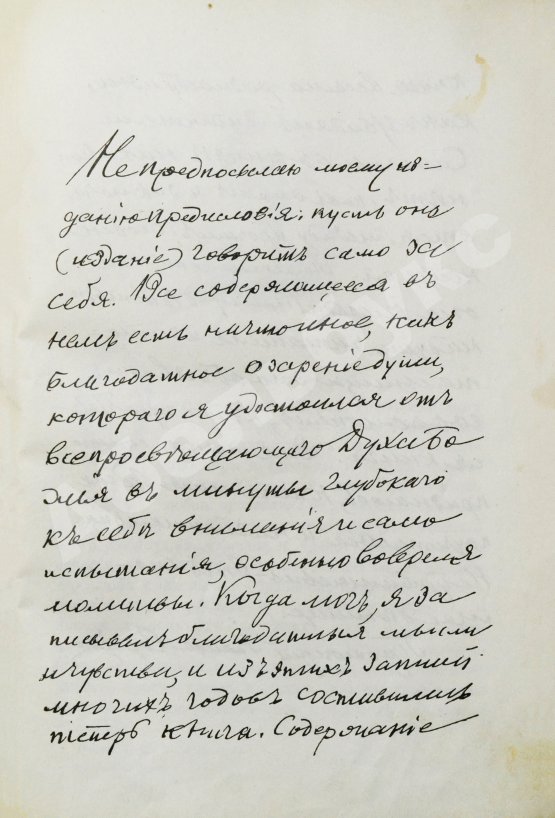 Не предпосылаю моему из-
данію предисловія: пусть оно
(изданіе) говоритъ само за
себя. Все содержащееся въ
немъ есть не что иное, какъ
благодатное озареніе души,
котораго я удостоился отъ
всепросвѣщающаго Духа Бо
жія въ минуты глубокаго
къ себѣ вниманія и само
испытанія, особенно во время
молитвы. Когда могъ, я за
писывалъ благодатныя мысли
и чувства, и изъ этихъ записей
многихъ годовъ составилась
теперь книга. Содержаніе